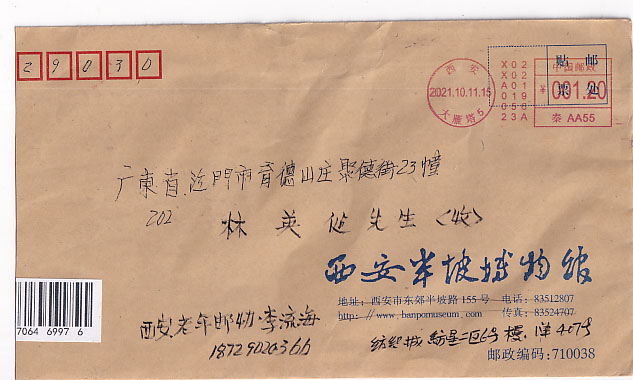 29030
西安
2021.10.11.15
大雁塔5
X02
X02
A01
019
056
23A
中国邮政
贴邮
票处
¥001.20
秦 AA55
广東省 江門市育德山庄聚德街23幢
202
林英 先生(收)
西安半坡博物館
地址:西安市东郊半坡路155号 电话:83512807
http://www.banpomuseum.com 传真:83524707
纺织城 纺星二区6号楼 407号
邮政编码:710038
7064 6997 6
西安老年邮协 李流海
18729020366